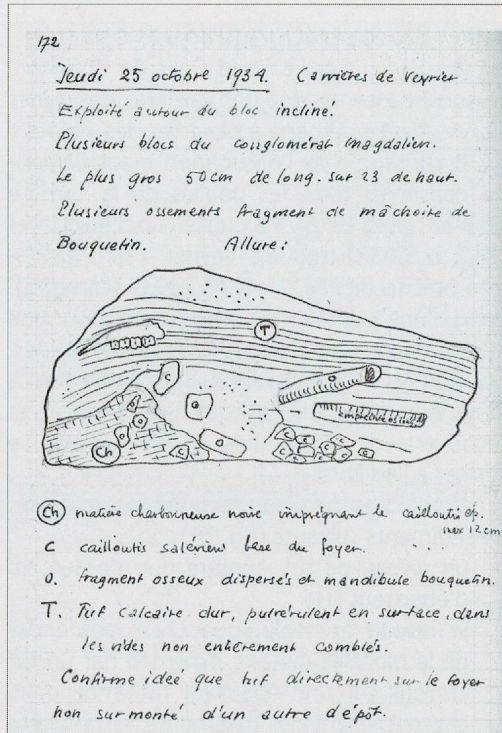 172
Jeudi 25 octobre 1934. Carrières de Veyrier
Exploité autour du bloc incliné.
Plusieurs blocs du conglomérat magdalien.
Le plus gros 50cm de long. sur 23 de haut.
Plusieurs ossements fragment de mâchoire de
Bouquetin. Allure:
T
c
o
o
o
o
o
Ch
o
c
c
o
empreinte os long
c
c
c
c
c
c
c
c
Ch matière charbonneuse noire imprégnant le cailloutis ép.
max 12cm
C cailloutis salévien base du foyer. ...
O. fragment osseux dispersés et mandibule bouquetin.
T. Tuf calcaire dur, pulvérulent en surface, dans
les vides non entièrement comblés.
Confirme ideé que tuf directement sur le foyer
non surmonté d'un autre dépôt.